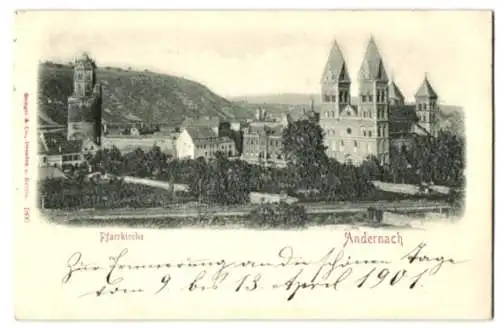 Stengel & Co., Dresden u. Berlin.
Pfarrkirche
Andernach
Zur Erinnerung an die schönen Tage
vom 9 bis 13 April 1901.